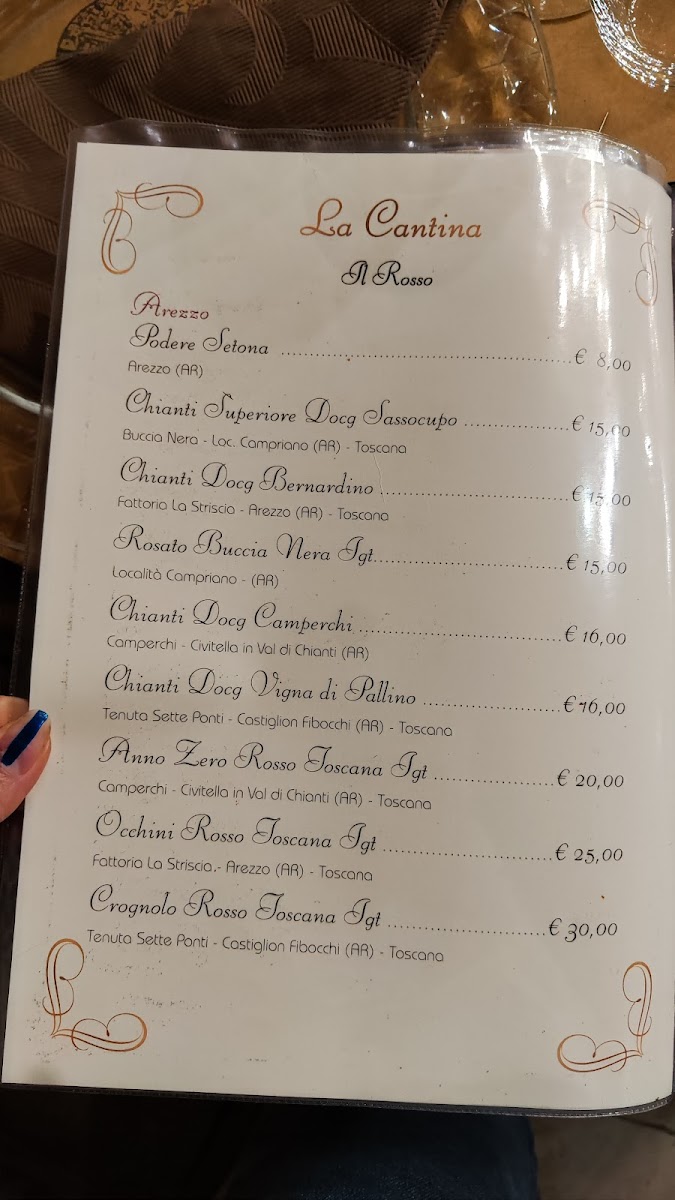 La Cantina
Il Rosso
Arezzo
Podere Setona ........................................................ € 8,00
Arezzo (AR)
Chianti Superiore Docg Sassocupo .................... € 15,00
Buccia Nera - Loc. Campriano (AR) - Toscana
Chianti Docg Bernardino .................................... € 15,00
Fattoria La Striscia - Arezzo (AR) - Toscana
Rosato Buccia Nera Igt..................................... € 15,00
Località Campriano - (AR)
Chianti Docg Camperchi ....................................... € 16,00
Camperchi - Civitella in Val di Chianti (AR)
Chianti Docg Vigna di Pallino ........................... € 16,00
Tenuta Sette Ponti - Castiglion Fibocchi (AR) - Toscana
Anno Zero Rosso Toscana Igt ....................... € 20,00
Camperchi - Civitella in Val di Chianti (AR) - Toscana
Occhini Rosso Toscana Igt ................................ € 25,00
Fattoria La Striscia.- Arezzo (AR) - Toscana
Crognolo Rosso Toscana Igt .............................. € 30,00
Tenuta Sette Ponti - Castiglion Fibocchi (AR) - Toscana